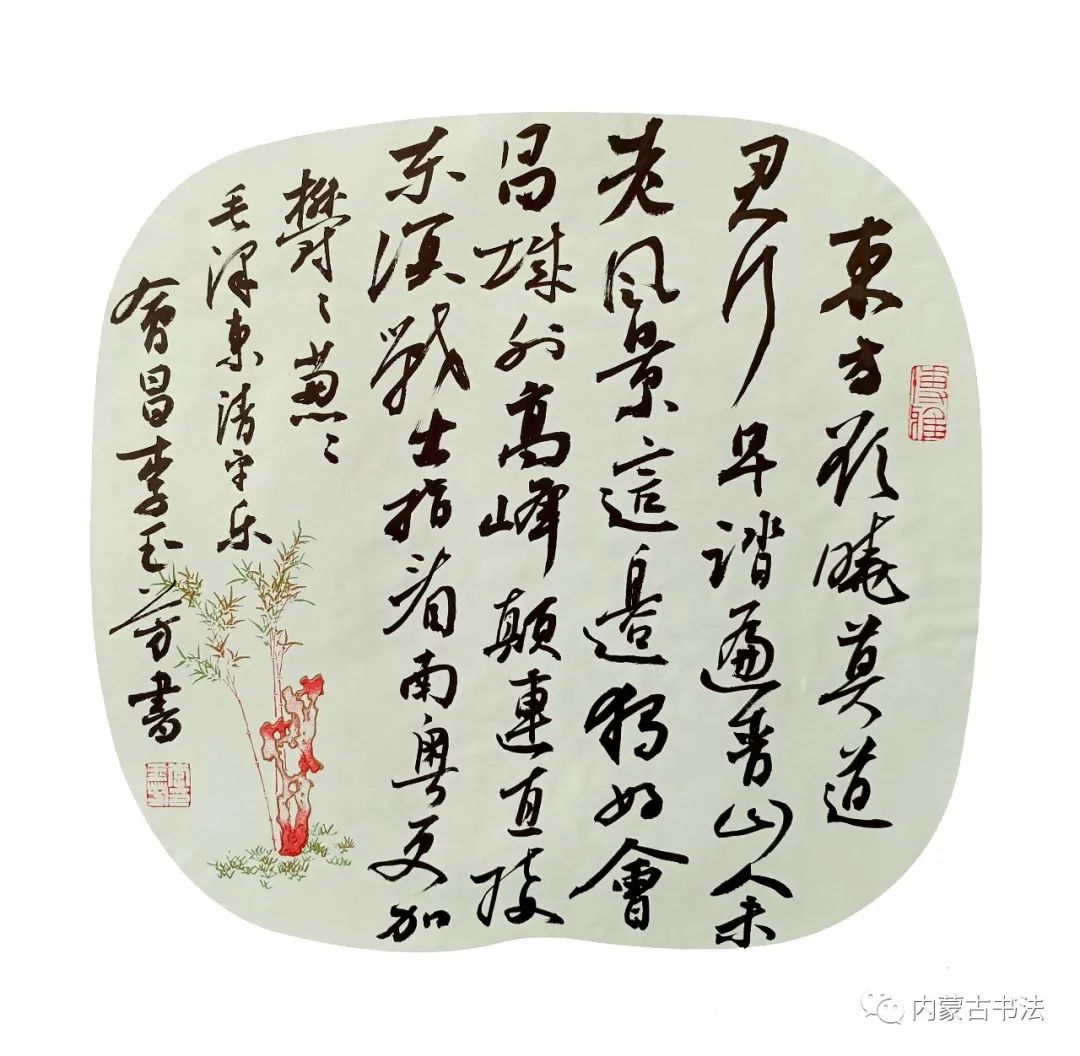 東方欲曉莫道
君行早踏遍青山人未
老风景這邊獨好會
昌城外高峰顛連直接
东溟戰士指看南粤更加
鬱〻葱〻
毛泽東清平乐
會昌李玉芳書
博雅
内蒙古书法